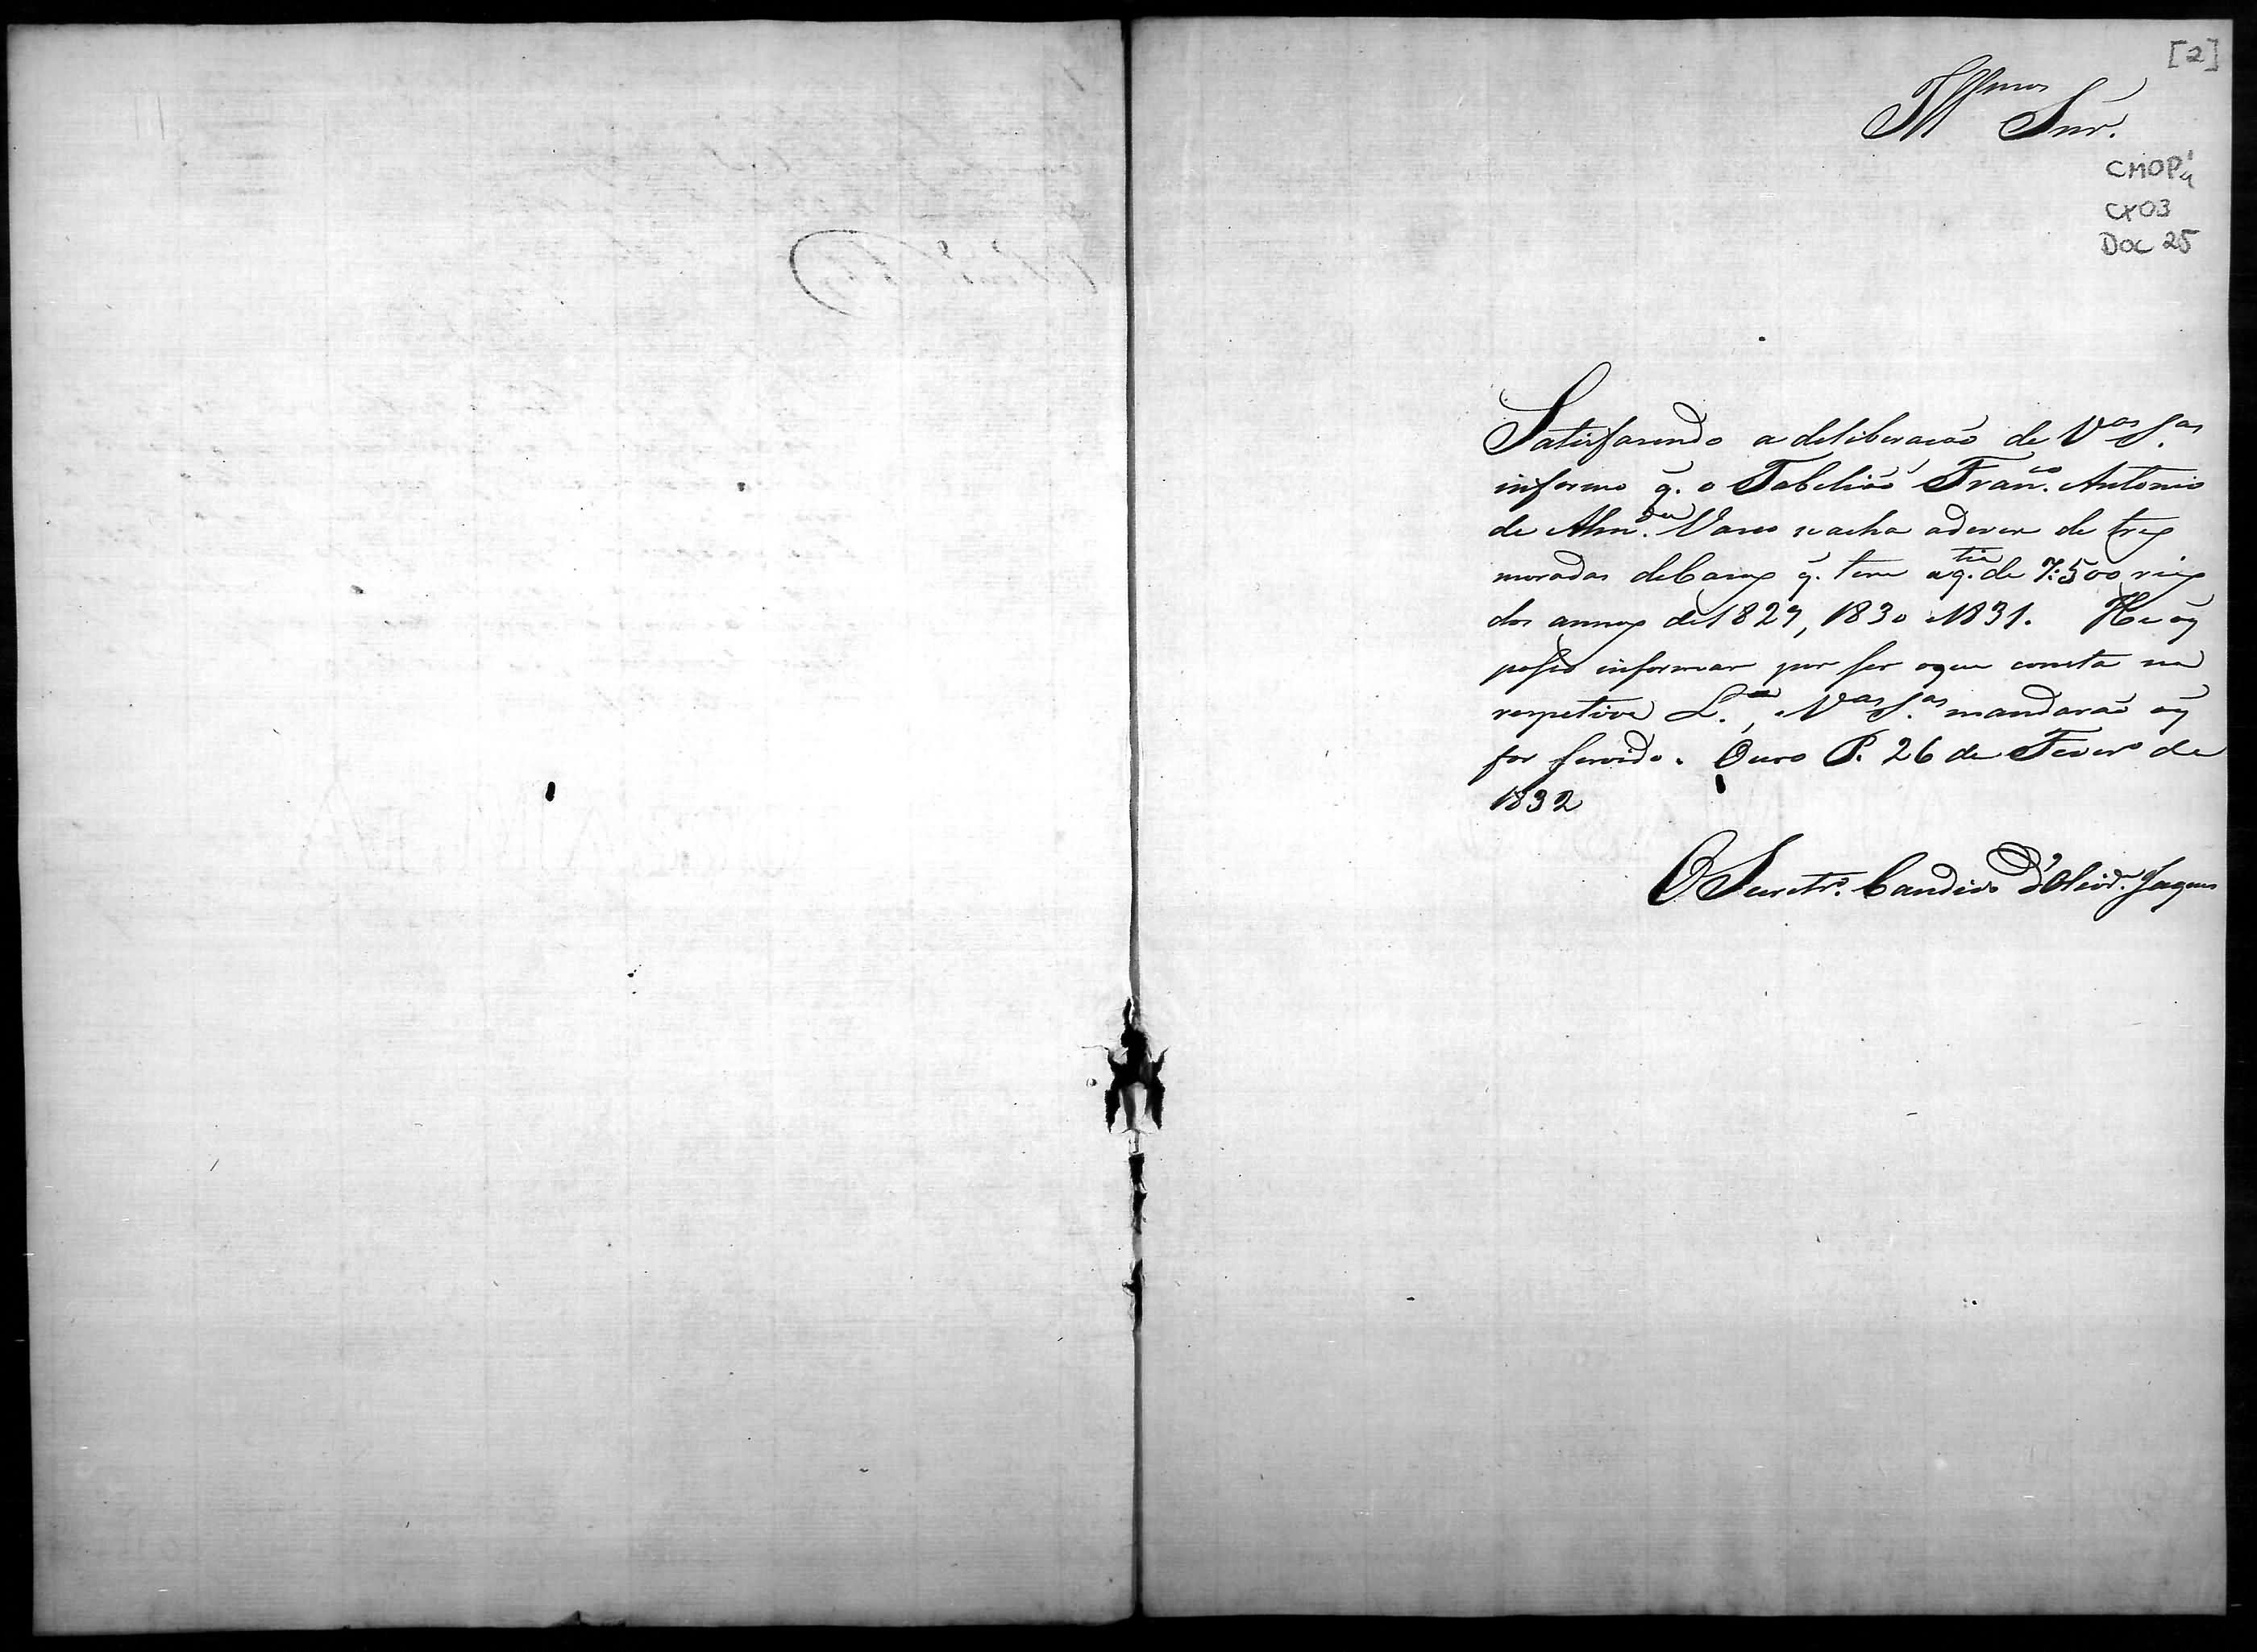 [2]
Illmos Snr.
CMOP
CX03
DOC 25
Satisfazendo a deliberação de Vas Sas
informo q. o Tabelião Franco. Antonio
de Almda. Vares se acha a dever de trez
moradas de Cazas q. tem a q.tia de 7:500 reis
dos annos de 1829, 1830 e 1831. He o q
posso informar por ser o que consta na
respetiva L.a, Vas Sas mandarão o q
for servido. Ouro P. 26 de Fevero de
1832
O Secretro. Candido d'Olivra. Jaques